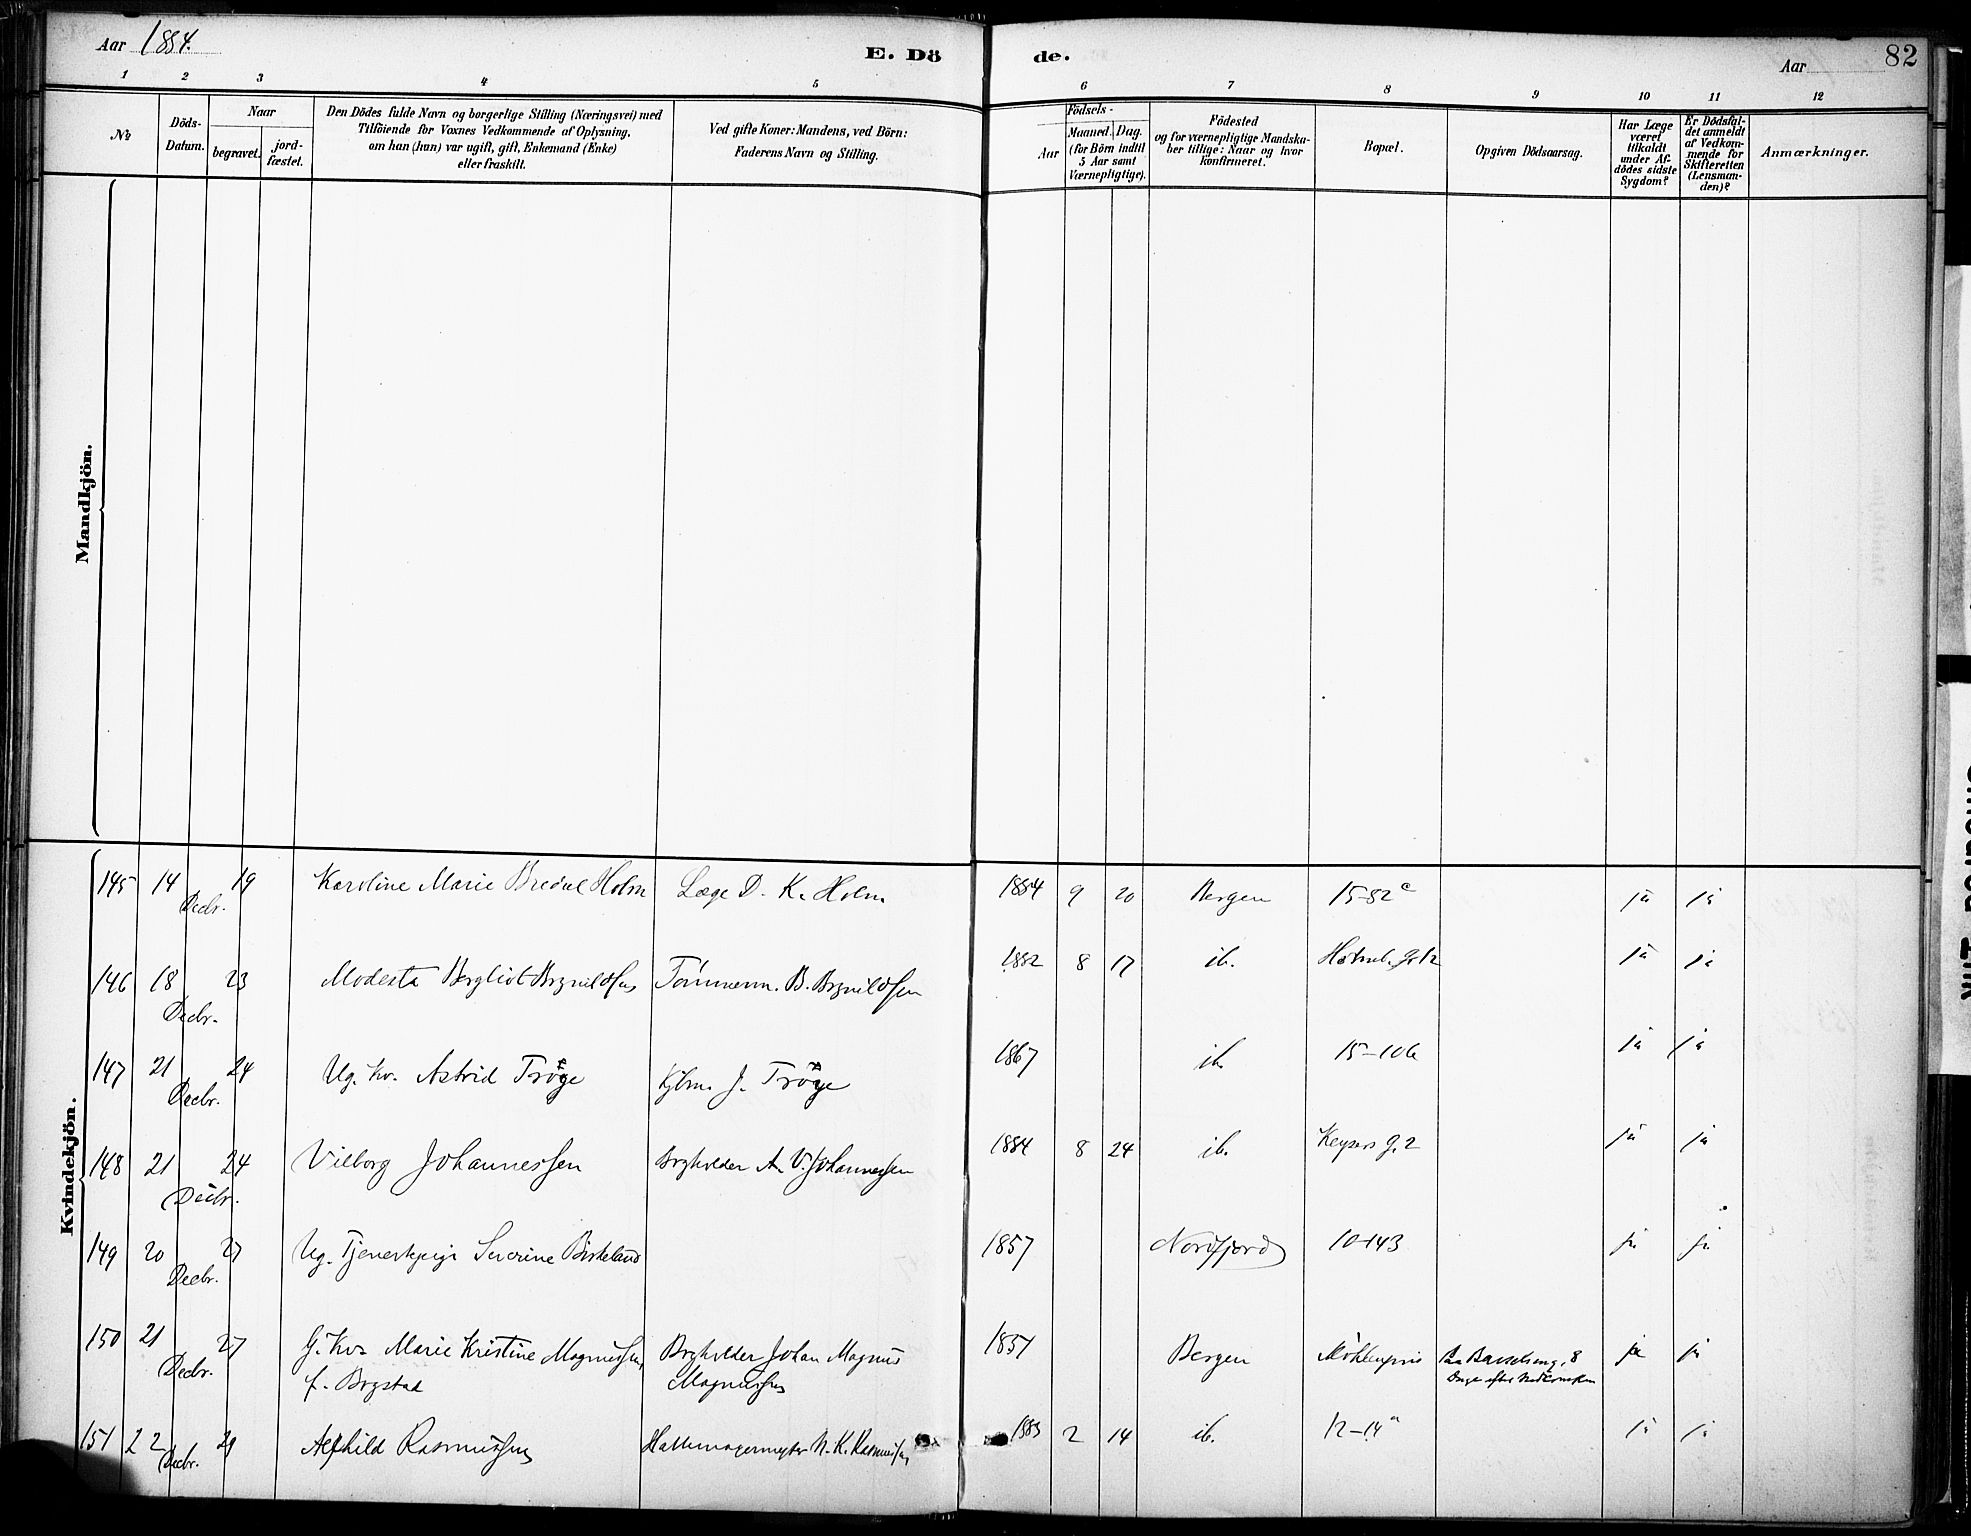 Aar 1884.
E. Dö de.
Aar 82
1 2 3 4 5 6 7 8 9 10 11 12
No
Döds-Datum.
Naar
begravet. jord-fæstet.
Den Dödes fulde Navn og borgerlige Stilling (Næringsvei) med
Tilföiende for Voxnes Vedkommende af Oplysning,
om han (hun) var ugift, gift, Enkemand (Enke)
eller fraskilt.
Ved gifte Koner: Mandens, ved Börn:
Faderens Navn og Stilling.
Födsels-
Aar Maaned. Dag.
(for Börn indtil
5 Aar samt
Værnepligtige).
Födested
og for værnepligtige Mandska-
ber tillige: Naar og hvor
konfirmeret.
Bopæl.
Opgiven Dödsaarsag.
Har Læge
været
tilkaldt
under Af-
dödes sidste
Sygdom?
Er Dödsfal-
det anmeldt
af Vedkom-
mende for
Skifteretten
(Lensman-
den)?
Anmærkninger.
Mandkjön.
Kvindekjön.
145 14 Decbr. 19 Karoline Marie Bredal Holm Læge D. K. Holm 1884 9 20 Bergen 15-82 c ja ja
146 18 Decbr. 23 Modesta Bergliot Brynildsen Tömmerm. B. Brynildsen 1882 8 17 ib. ja ja
147 21 Decbr. 24 Ug. Kv. Astrid Tröge Kjbm. J. Tröge 1867 ib. 15-106 ja ja
148 21 Decbr. 24 Vilborg Johannessen A. V. Johannessen 1884 8 24 ib. Keysers G. 2 ja ja
149 20 Decbr. 27 Ug. Tjenestepige Severine Birkeland 1857 Nordfjord 10-143 ja ja
150 21 Decbr. 27 G. Kv. Marie Kristine Magnussen Johan Magnus 1851 Bergen Möhlenpris Paa Barselseng, 8 ja ja
f. Brystad Magnussen Dage efter Nedkomsten
151 22 Decbr. 29 Alfhild Rasmussen Hattemagermester N. K. Rasmussen 1883 2 14 ib. 12-14 a ja ja